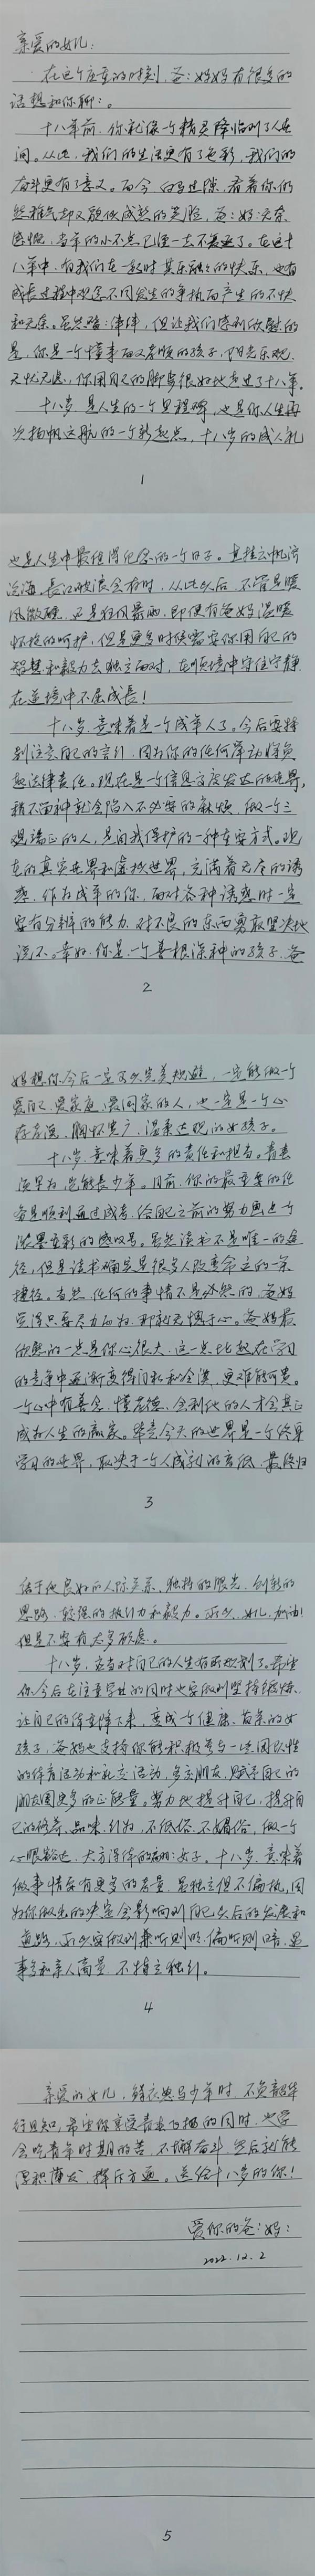 亲爱的女儿:
在这个庄重的时刻,爸:妈妈有很多的
话想和你聊:。
十八年前,你就像一个精灵降临到了人世
间。从此,我们的生活更有了色彩,我们的
奋斗更有了意义。而今,白驹过隙,看着你仍
然稚气却又貌似成熟的笑脸,爸:妈:无奈
感慨,当年的小不点已经一去不复返了。在这十
八年中,有我们在一起时其乐融融的快乐,也有
成长过程中观念不同发生的争执而产生的不快
和无奈。虽然磕:绊绊,但让我们感到欣慰的
是,你是一个懂事而又孝顺的孩子,阳光乐观,
无忧无虑,你用自己的脚步很好地走过了十八年。
十八岁,是人生的一个里程碑,也是你人生再
次扬帆远航的一个新起点,十八岁的成人礼
1
也是人生中最值得纪念的一个日子。直挂云帆济
沧海,长风破浪会有时,从此以后,不管是暖
风微醺,还是狂风暴雨,即便有爸妈温暖
怀抱的呵护,但是更多时候需要你用自己的
智慧和毅力去独立面对,在顺境中守住宁静,
在逆境中不屈成长!
十八岁,意味着是一个成年人了。今后要特
别注意自己的言行,因为你的任何举动将负
起法律责任。现在是一个信息高度发达的世界,
稍不留神就会陷入不必要的麻烦,做一个三
观端正的人,是自我保护的一种重要方式。现
在的真实世界和虚拟世界,充满着无尽的诱
惑,作为成年的你,面对各种诱惑时一定
要有分辨的能力,对不良的东西勇敢坚决地
说不。幸好,你是一个善根深种的孩子,爸
2
妈想你今后一定可以完美规避,一定能做一个
爱自己,爱家庭,爱国家的人,也一定是一个心
存善念,胸怀宽广,温柔达观的女孩子。
十八岁,意味着更多的责任和担当。青春
须早为,岂能长少年。目前,你的最重要的任
务是顺利通过成考,给自己之前的努力画上个
浓墨重彩的感叹号。虽然读书不是唯一的途
径,但是读书确实是很多人改变命运的一条
捷径。当然,任何的事情不是必然的,爸妈
觉得只要尽力而为,那就无愧于心。爸妈最
欣慰的一点是你心很大,这一点比起在学习
的竞争中逐渐变得自私和全漠,更难能可贵。
一个心中有善念,懂孝德,会利他的人才会真正
成为人生的赢家。毕竟今天的世界是一个终身
学习的世界,取决于一个人成就的高低,最终归
3
结于他良好的人际关系,独特的眼光,创新的
思路,较强的执行力和毅力。所以,女儿,加油!
但是不要有太多顾虑。
十八岁,应当对自己的人生有所规划了。希望
你今后在注重学业的同时也要做到坚持锻炼,
让自己的体重降下来,变成一个健康、苗条的女
孩子,爸妈也支持你能积极参与一些团队性
的体育活动和社交活动,多交朋友,赋予自己的
朋友圈更多的正能量。努力地提升自己,提升自
己的修养、品味、行为,不低俗,不媚俗,做一个
心眼豁达,大方得体的女子。十八岁,意味着
做事情要有更多的考量,要独立但不偏执,因
为你做出的决定会影响到自己以后的发展和
道路,所以要做到兼听则明,偏听则暗,遇
事多和亲人商量,不特立独行。
4
亲爱的女儿,鲜衣怒马少年时,不负韶华
行且知,希望你享受青春飞扬的同时,也学
会吃青年时期的苦,不懈奋斗,然后就能
厚积薄发,挥斥方遒。送给十八岁的你!
爱你的爸:妈:
2022.12.2
5